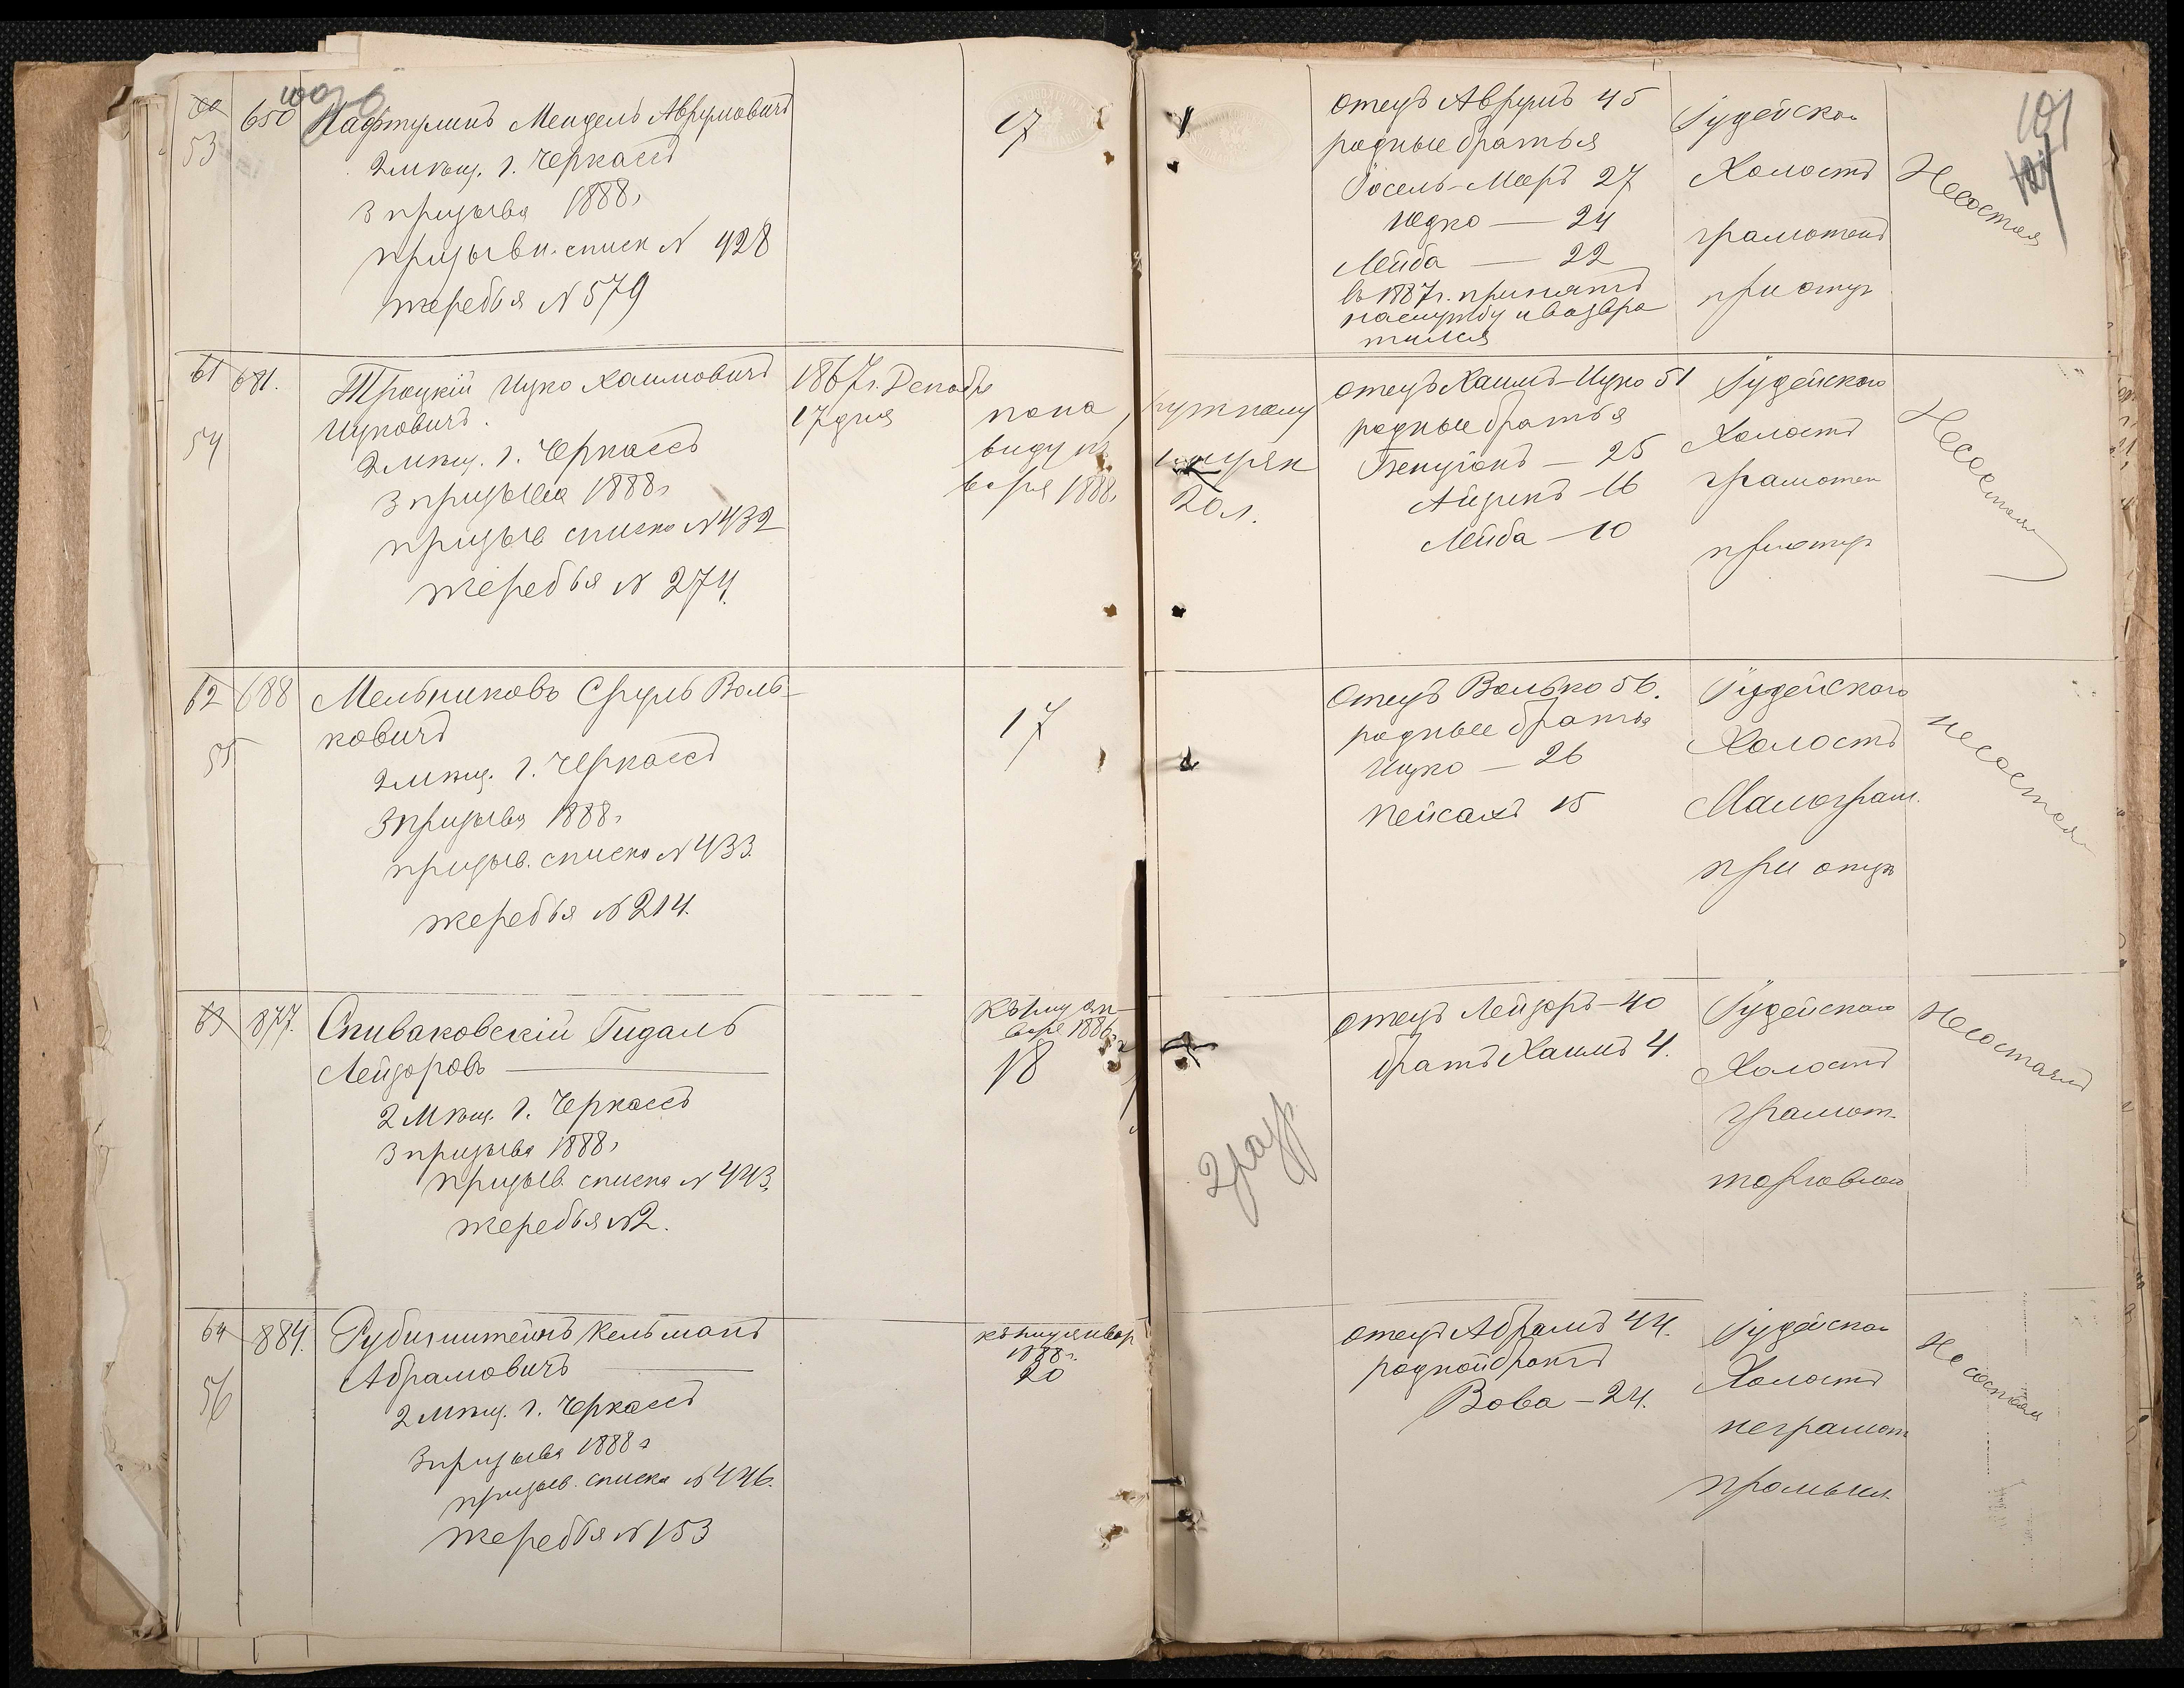 60 650 Нафтулинъ Мендель Аврумовичъ
53
2 Мѣщ. г. Черкассъ
3 призыва 1888 г
призывн. списк N 428
жеребья N 579
17
отецъ Аврумъ 45
родные братья
Іосель-Мееръ 27
Юдко — 24
Лейба — 22
въ 1887 г. принятъ
на службу и возвра
тился
Іудейско
Холостъ
грамотенъ
при отцѣ
Несостоя
101
61 681. Троцкій Ицко Хаимовичъ
Ицковичъ.
54
2 Мѣщ. г. Черкассъ
3 призыва 1888 г
призыв списка N 432
жеребья N 274.
1867 г. Декабря
17 дня
по на ружному
виду къ 1 янв
варя 1888 г
20 л.
отецъ Хаимъ-Ицко 51
родные братья
Бенціонъ — 25
Айзикъ — 16
Лейба — 10
Іудейскаго
Холостъ
грамотен
при отцѣ
Несостоял
62 688 Мельниковъ Сруль Воль-
ковичъ
55
2 Мѣщ. г. Черкассъ
3 призыва 1888 г
призыв. списка N 433.
жеребья N 214.
17
Отецъ Волько 56.
родные братья
Ицко — 26
Пейсахъ 15
Іудейскаго
Холостъ
Малограм.
при отцѣ
несостоял
63 877. Спиваковскій Гидаль
Лейзоровъ
2 Мѣщ. г. Черкассъ
3 призыва 1888 г
призыв. списка N 443.
жеребья N 2.
Къ 1 му ян-
варя 1886 г.
18
2 разр
отецъ Лейзоръ — 40
братъ Хаимъ 4.
Іудейскаго
Холостъ
грамот.
торговлею
Несостоялъ
64 884. Рубинштейнъ Кельманъ
Абрамовичъ
56
2 Мѣщ. г. Черкассъ
3 призыва 1888 г
призыв. списка N 446.
жеребья N 153
къ 1 му январ
1888 г.
20
отецъ Абрамъ 44.
родной братъ
Вова — 24.
Іудейско
Холостъ
неграмот
Несостоял